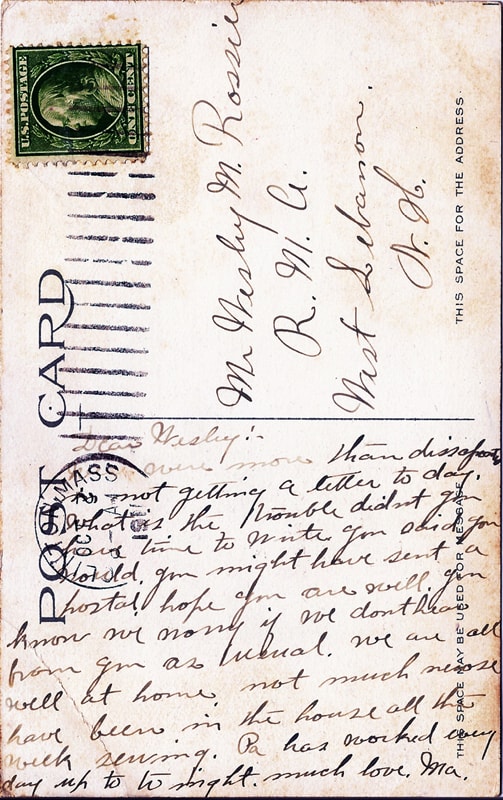 U.S. POSTAGE
ONE CENT
POST CARD
MASS
OCT
THIS SPACE FOR THE ADDRESS.
THIS SPACE MAY BE USED FOR MESSAGE
Mr Wesley M. Rossie
R. M. A.
West Lebanon.
N. H.
Dear Wesley:-
were more than dissapoint
not getting a letter to day.
What is the trouble didnt you
have time to write you said you
would. you might have sent a
postal hope you are well you
know we worry if we dont hear
from you as usual. we are all
well at home not much newse
have been in the house all the
week sewing. Pa has worked every
day up to to night. much love. Ma.